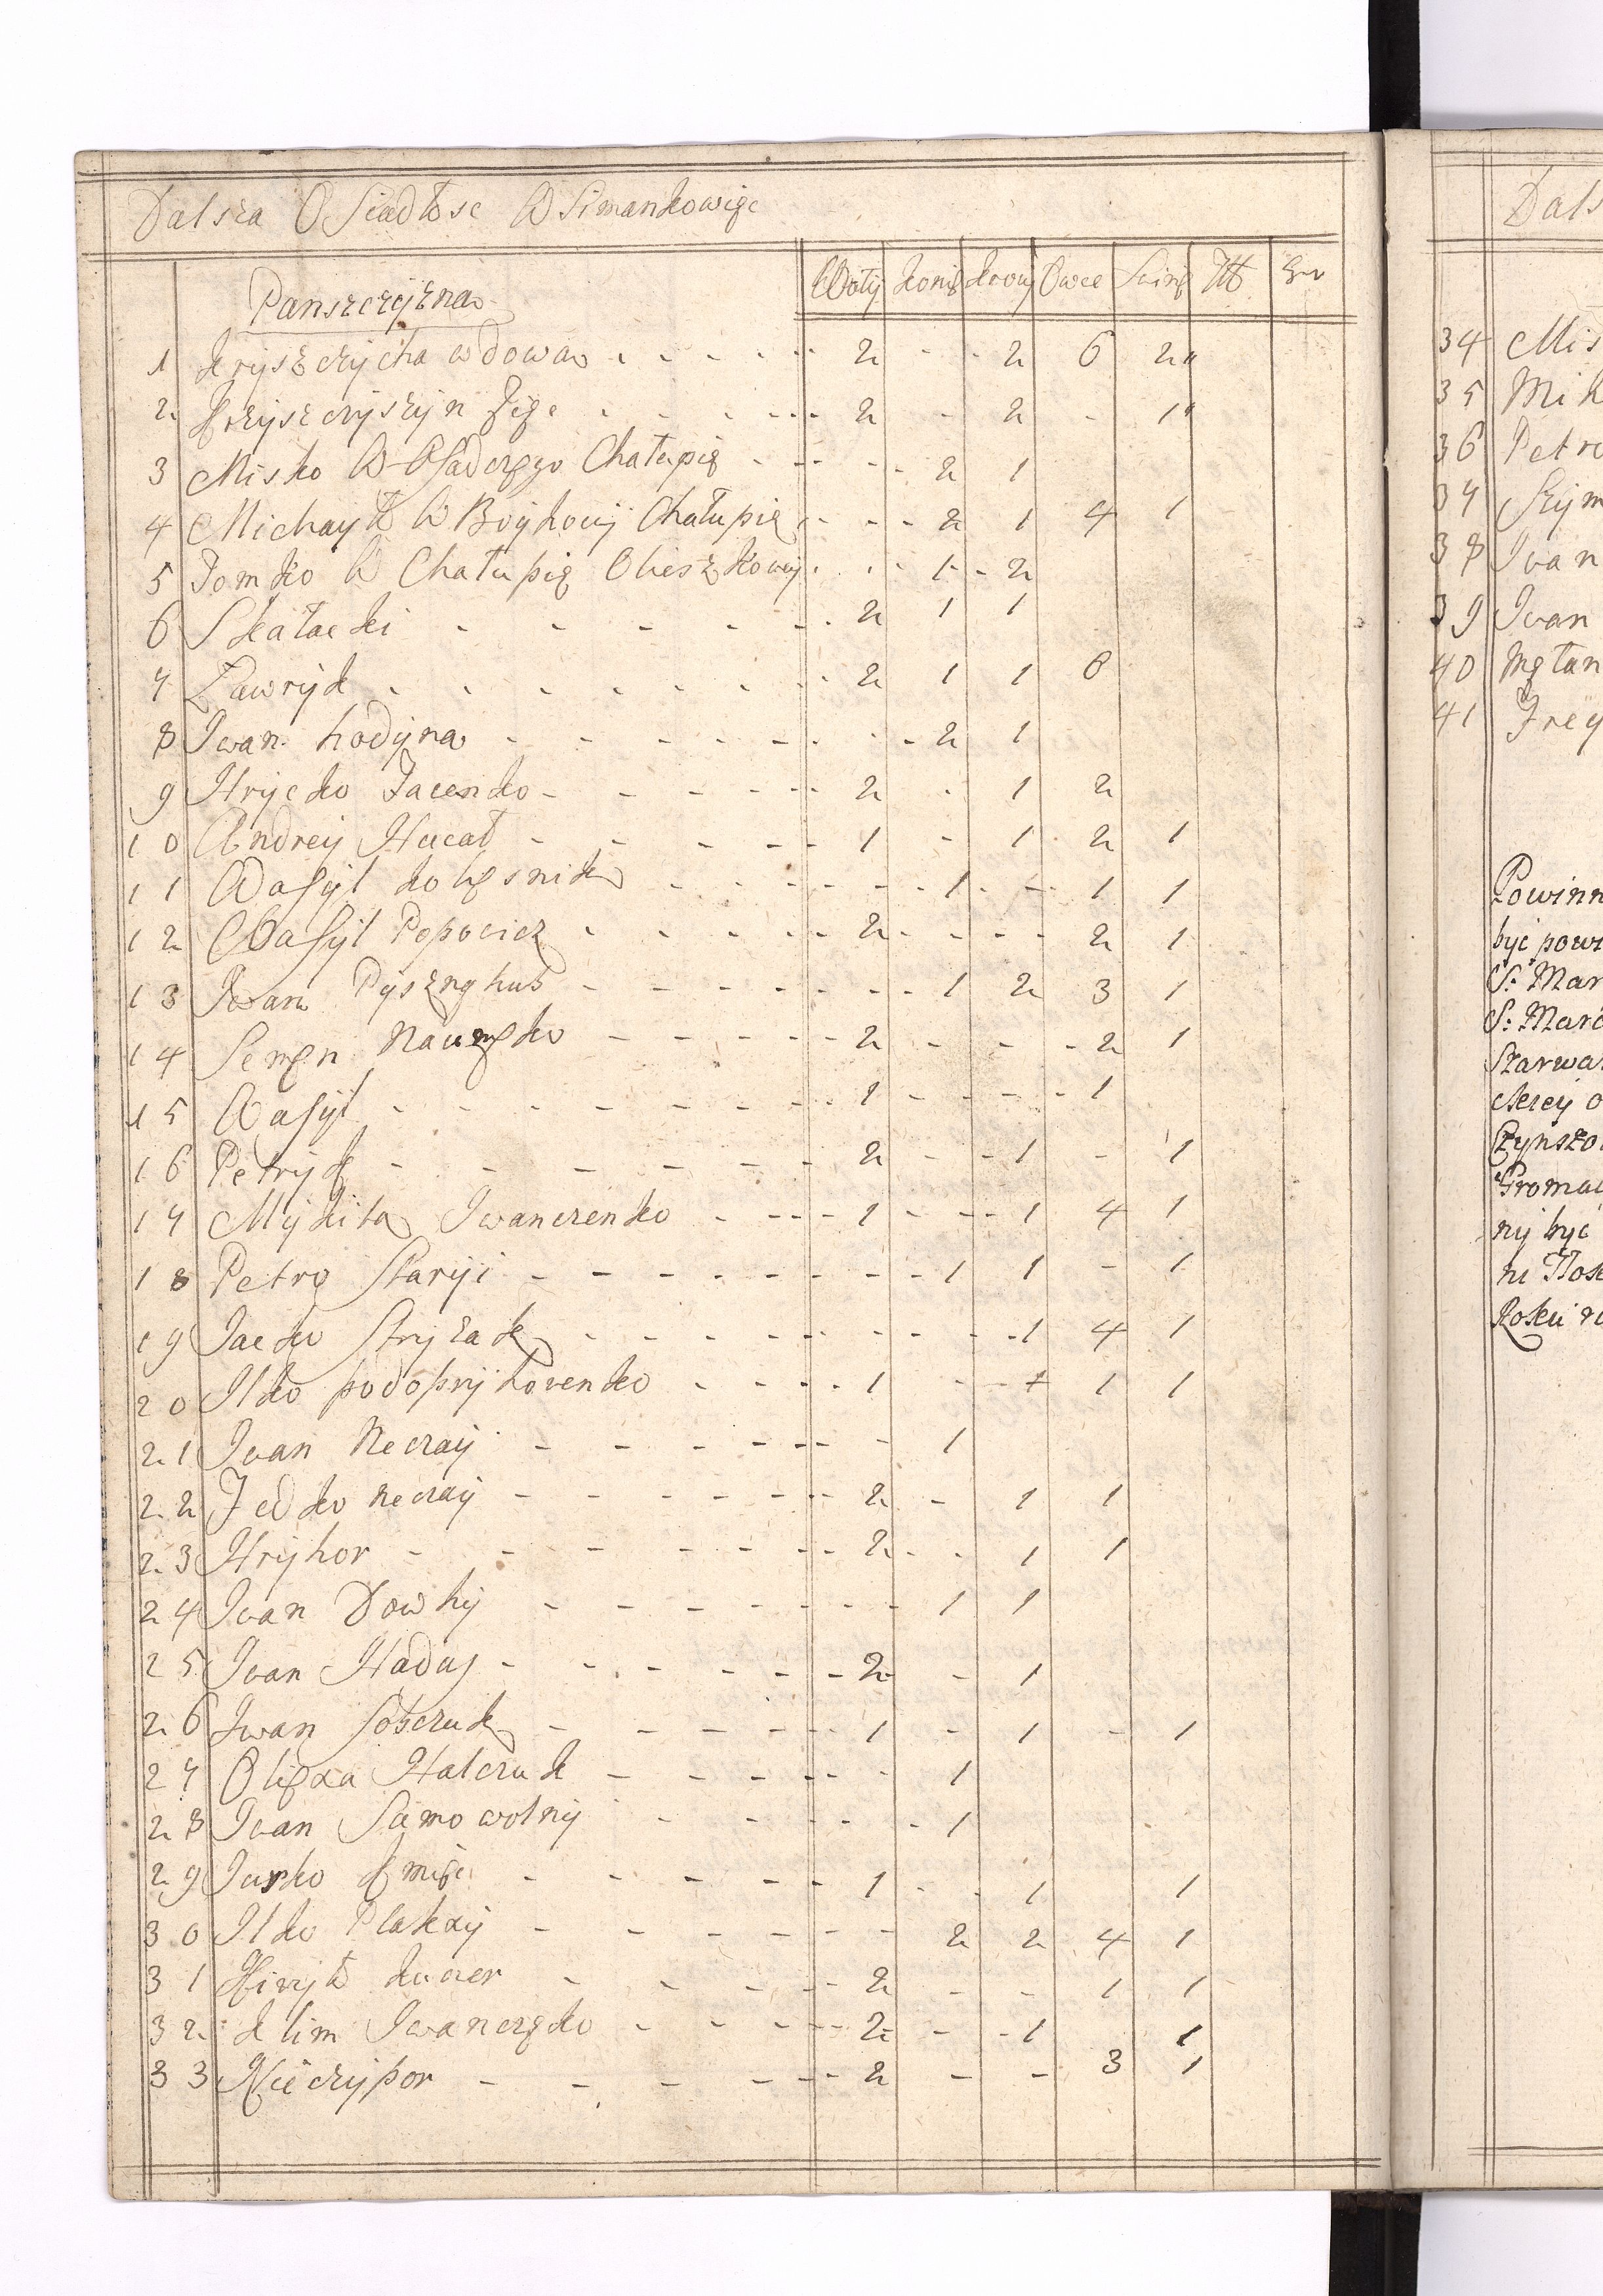 Dalsza OSiadłosc W Simankowige
Panszczyzna Woły konie krowy Owce Swinie Zł Gr
1 kryszczycha wdowa 2 - 2 6 2
2 kryszczyszyn Zięc 2 - 2 - 1
3 Misko W OSadczego Chałupie - 2 1
4 Michayło W Boykowy Chałupie - 2 1 4 1
5 Tomko W Chałupie Olieszkowy - 1 2
6 Skałacki 2 1 1
7 Ławryk 2 1 1 6
8 Iwan hodyna - 2 1
9 Hrycko Jacenko 2 - 1 2
10 Andrey Hucał 1 - 1 2 1
11 WaSyl koliesnik - 1 - 1 1
12 WaSyl Popowicz 2 - - 2 1
13 Iwan - 1 2 3 1
14 Semen Naumeko 2 - - 2 1
15 WaSyl 1 - - 1
16 Petryk 2 - 1 - 1
17 Mykita Iwanczenko 1 - 1 4 1
18 Petro Staryi - 1 1 - 1
19 Jacko Stryzak - - 1 4 1
20 Ilko podopryhorenko 1 - 1 1 1
21 Iwan Neczay - 1
22 Fedko neczay 2 - 1 1
23 Hryhor 2 - 1 1
24 Iwan Dowhy - 1 1
25 Iwan Haduj 2 - 1
26 Iwan Sobczuk 1 - 1 - 1
27 Oliexa Halczuk - 1
28 Iwan Samowolny - 1
29 Jusko kmiec 1 - 1 1
30 Ilko Plaksy - 2 2 4 1
31 kiryło kuczer 2 - - 1 1
32 klim Iwanczeko 2 - 1 1
33 Nieczypor 2 - - 3 1
Dals
34 Mis
35 Mik
36 Petro
37 Szym
38 Iwan
39 Iwan
40 Mełan
41 Frey
Powinn
być powi
S: Mar
S: Marc
Szarwa
Aerey o
Czynszo
Gromad
ny być
ni Host
Roku